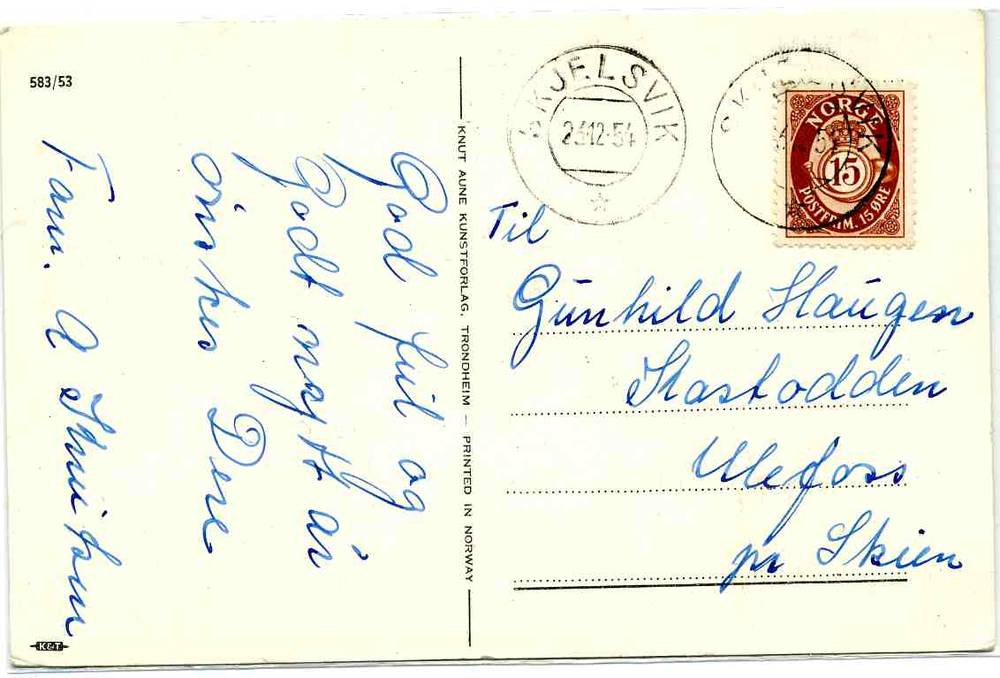 583/53
God jul og
Godt nytt år
önskes Dere
Fam. A
KNUT AUNE KUNSTFORLAG, TRONDHEIM — PRINTED IN NORWAY
K&T
SKJELSVIK
23.12-54
NORGE
15
POSTFRIM. 15 ØRE
Til
Gunhild Haugen
Kastodden
Ulefoss
pr Skien